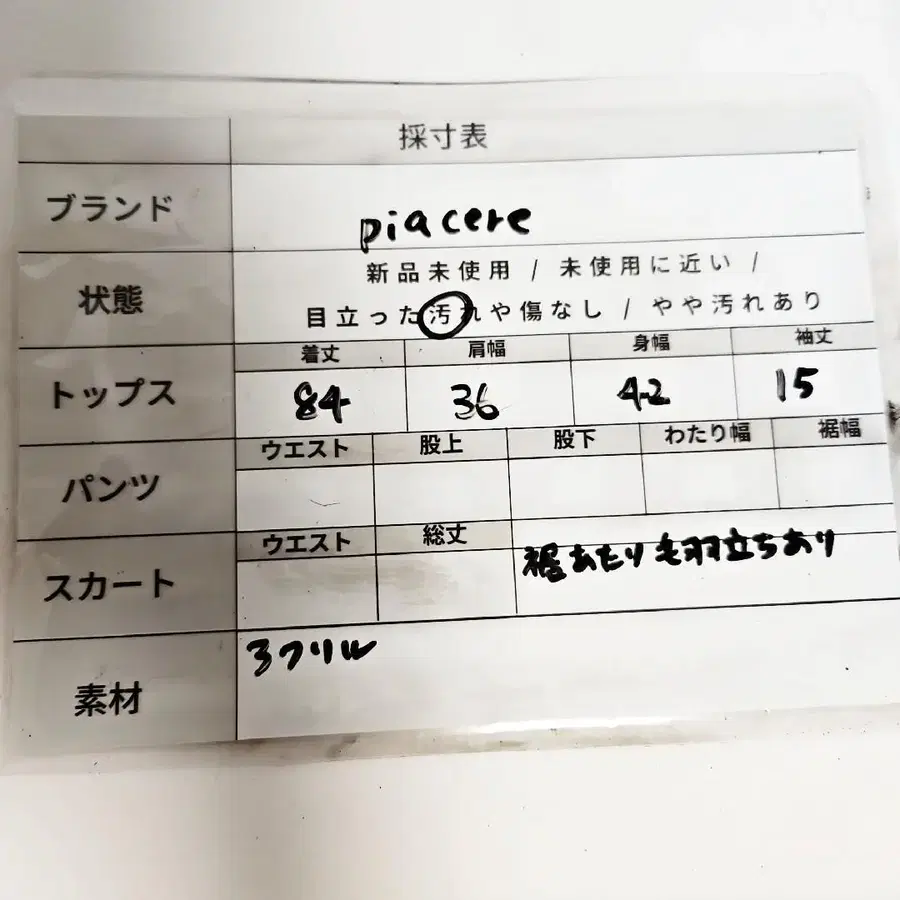 採寸表
ブランド
piacere
状態
新品未使用 / 未使用に近い /
目立った汚れや傷なし / やや汚れあり
トップス
着丈 肩幅 身幅 袖丈
84 36 42 15
パンツ
ウエスト 股上 股下 わたり幅 裾幅
スカート
ウエスト 総丈
裾あたり毛羽立ちあり
素材